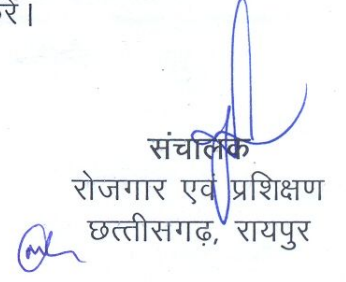 रे।
संचालक
रोजगार एवं प्रशिक्षण
छत्तीसगढ़, रायपुर